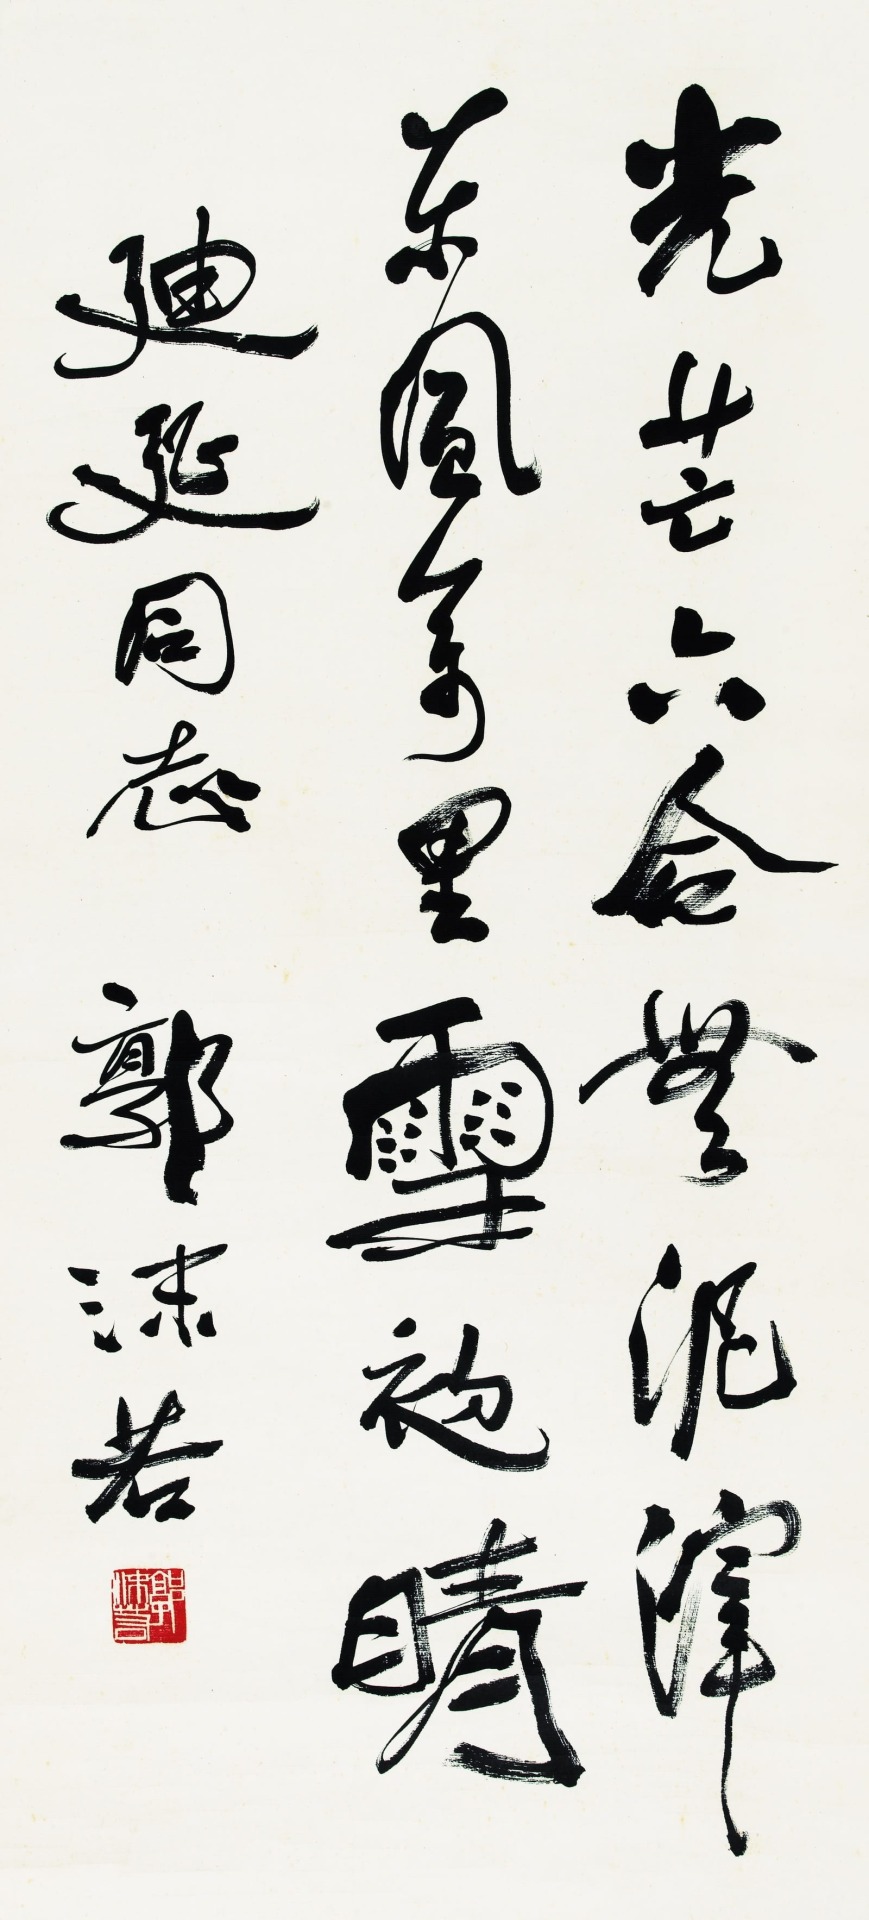 光芒六合無泥滓
東風萬里雪初晴
迪延同志 郭沫若
郭沫若